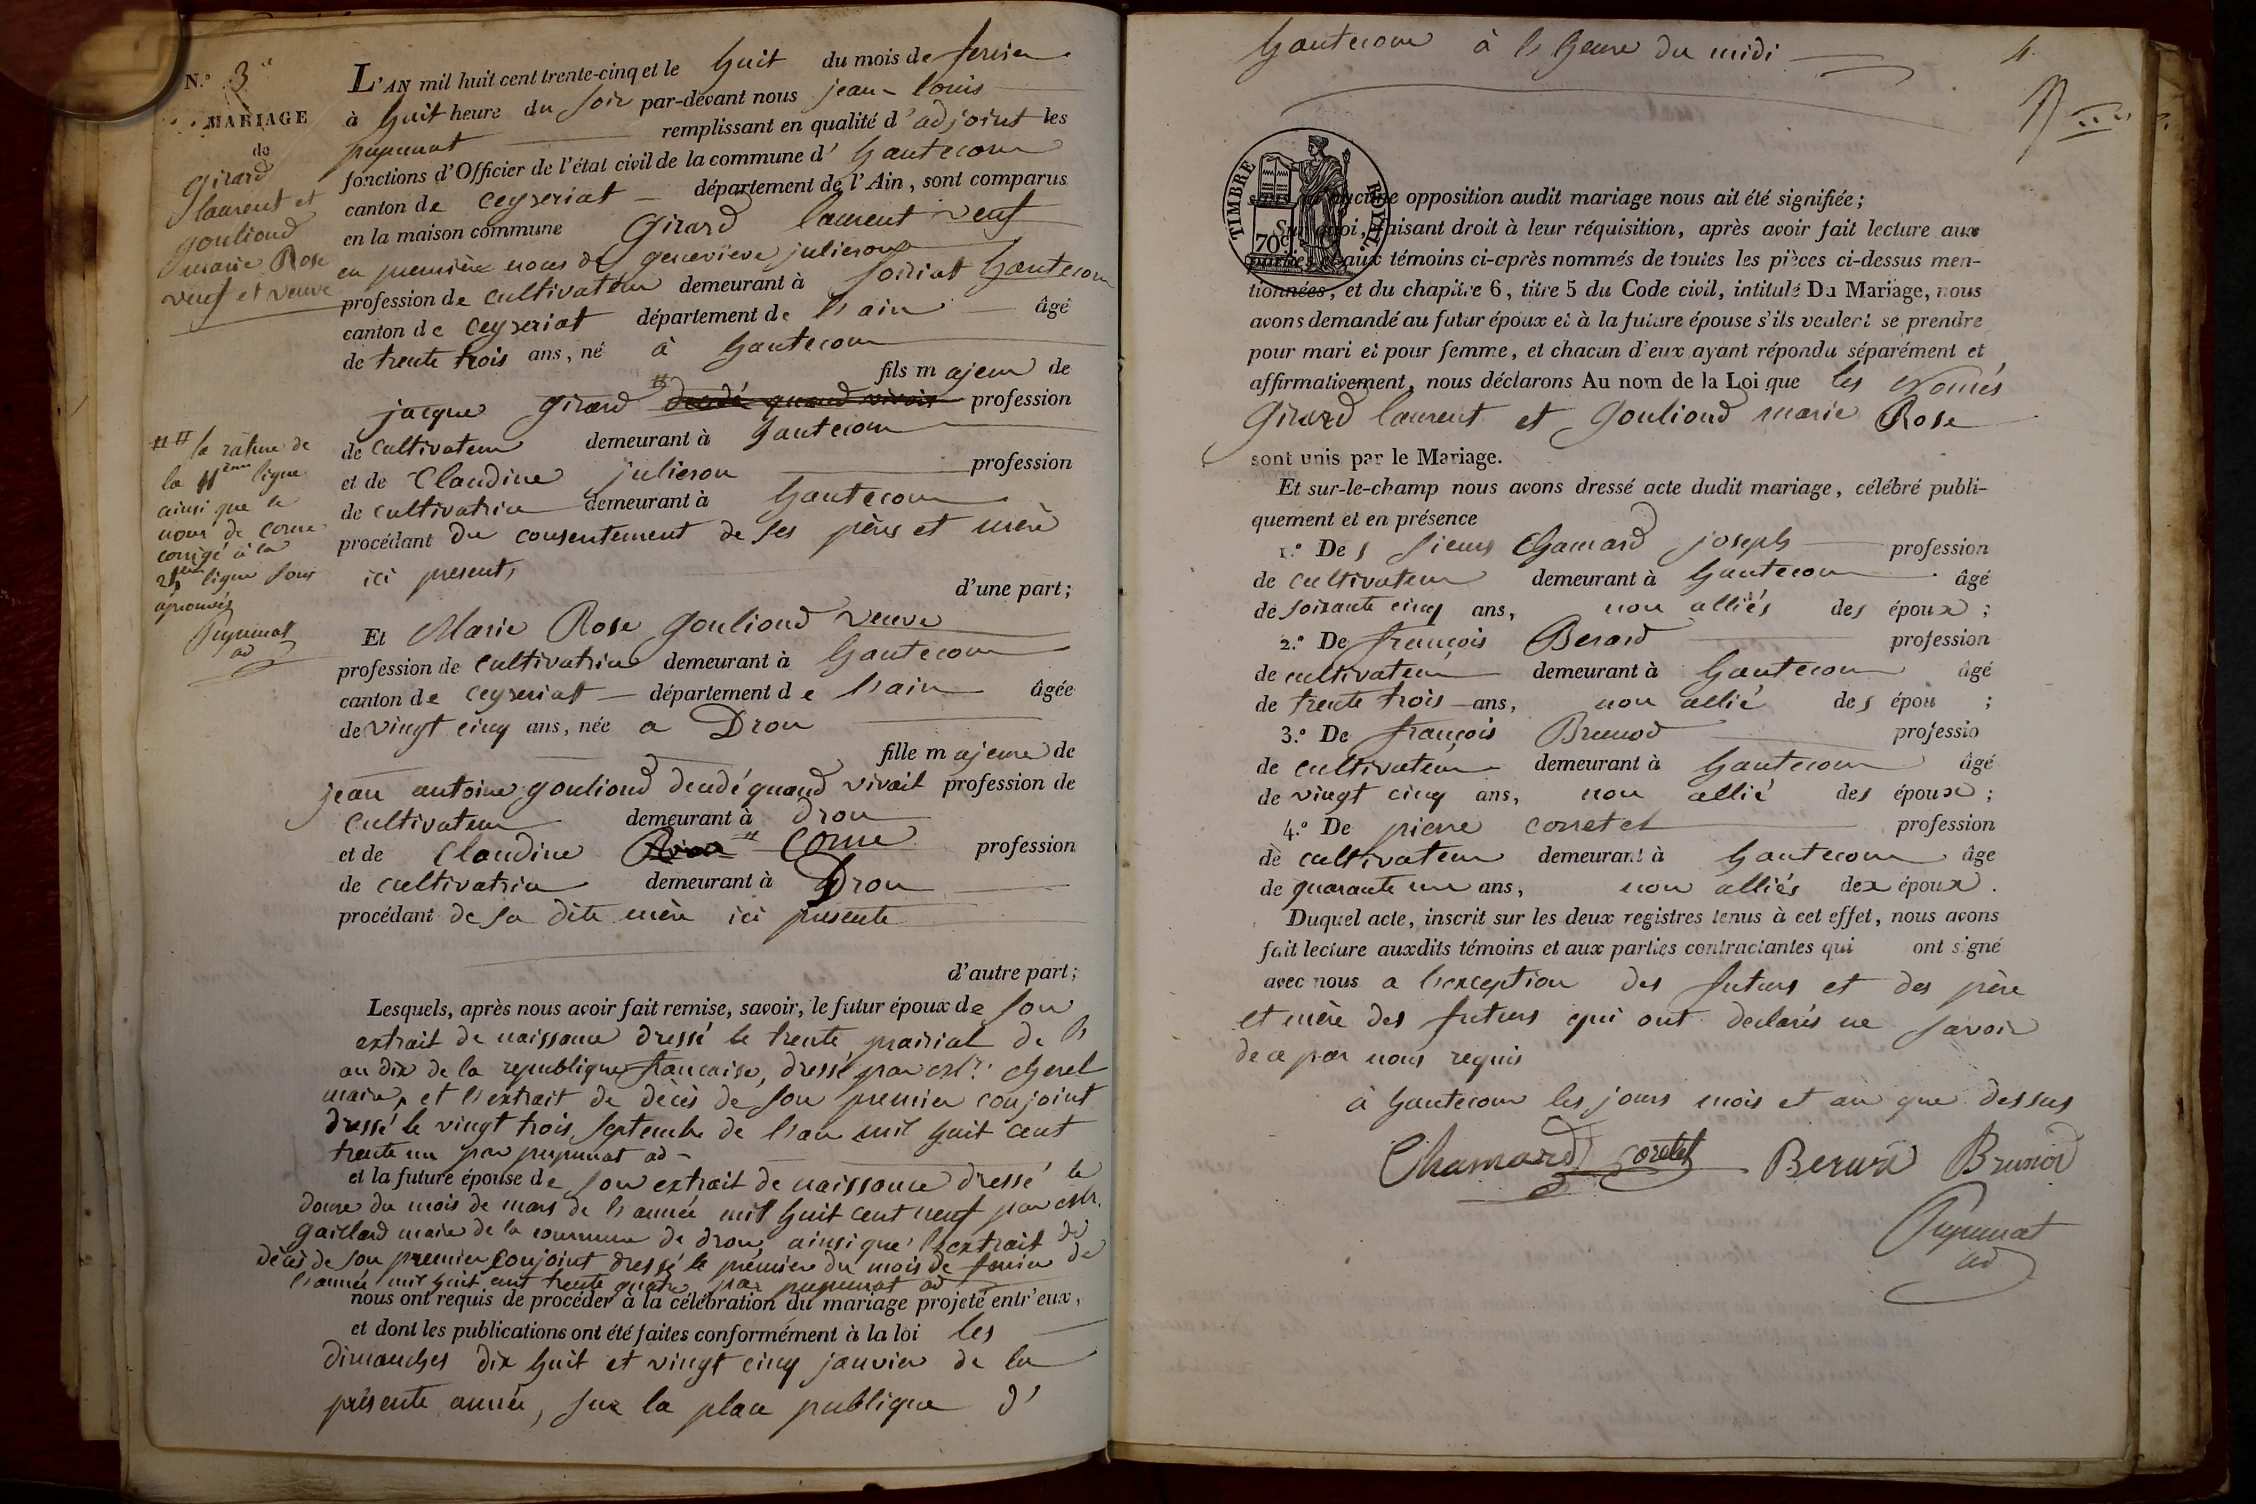 N.º 3
MARIAGE
de
Girard
laurent et
gouliond
marie Rose
veuf et veuve
L'AN mil huit cent trente-cinq et le huit du mois de fevrier
à huit heure du soir par-devant nous jean-louis
pupunat remplissant en qualité d'adjoint les
fonctions d'Officier de l'état civil de la commune d' hautecour
canton de ceyzeriat département de l'Ain, sont comparus
en la maison commune Girard laurent veuf
en première noces de geneviève julieron
profession de cultivateur demeurant à hautecour
canton de ceyzeriat département de l'ain âgé
de trente trois ans, né à hautecour
fils majeur de
jacque girard decdé quand vivait profession
de cultivateur demeurant à hautecour
et de Claudine julieron profession
de cultivatrice demeurant à hautecour
procédant du consentement de ses pères et mère
ici present,
d'une part;
la rature de
la 11ème ligne
ainsi que le
nom de corne
corrigé à la
ligne sont
aprouvés
Pupunat
ad
Et Marie Rose gouliond veuve
profession de cultivatrice demeurant à hautecour
canton de ceyzeriat département de l'ain âgée
de vingt cinq ans, née a Drom
fille majeure de
jean antoine gouliond decdé quand vivait profession de
cultivateur demeurant à drom
et de Claudine corne profession
de cultivatrice demeurant à Drom
procédant de sa dite mère ici presente
d'autre part;
Lesquels, après nous avoir fait remise, savoir, le futur époux de son
extrait de naissance dressé le trente prairial de l'
an dix de la republique francaise, dressé par cherel
maire, et l'extrait de décès de son premier conjoint
dressé le vingt trois septembre de l'an mil huit cent
trente un par pupunat ad
et la future épouse de son extrait de naissance dressé le
douze du mois de mars de l'année mil huit cent neuf par
gaillard maire de la commune de drom ainsi que l'extrait de
décès de son premier conjoint dressé le premier du mois de fevrier de
l'année mil huit cent trente quatre par pupunat ad
nous ont requis de procéder à la célébration du mariage projeté entr'eux,
et dont les publications ont été faites conformément à la loi les
dimanches dix huit et vingt cinq janvier de la
présente année, sur la place publique d'
hautecour à l'heure du midi
4
TIMBRE ROYAL.
70c
sans qu'aucune opposition audit mariage nous ait été signifiée;
Sur quoi, faisant droit à leur réquisition, après avoir fait lecture aux
parties et aux témoins ci-après nommés de toutes les pièces ci-dessus men-
tionnées, et du chapitre 6, titre 5 du Code civil, intitulé Du Mariage, nous
avons demandé au futur époux et à la future épouse s'ils veulent se prendre
pour mari et pour femme, et chacun d'eux ayant répondu séparément et
affirmativement, nous déclarons Au nom de la Loi que les només
Girard laurent et gouliond marie Rose
sont unis par le Mariage.
Et sur-le-champ nous avons dressé acte dudit mariage, célébré publi-
quement et en présence
1.º Des sieurs Chamard joseph profession
de cultivateur demeurant à hautecour âgé
de soixante cinq ans, non alliés des époux;
2.º De françois Berard profession
de cultivateur demeurant à hautecour âgé
de trente trois ans, non allié des épou ;
3.º De françois Brunod professio
de cultivateur demeurant à hautecour âgé
de vingt cinq ans, non allié des époux;
4.º De pierre corretel profession
de cultivateur demeurant à hautecour âge
de quarante un ans, non alliés dex époux.
Duquel acte, inscrit sur les deux registres tenus à cet effet, nous avons
fait lecture auxdits témoins et aux parties contractantes qui ont signé
avec nous a l'exception des futurs et des père
et mère des futurs qui ont declarés ne savoir
de ce par nous requis
à hautecour les jours mois et an que dessus
Chamard coretel Berard Brunod
Pupunat
ad